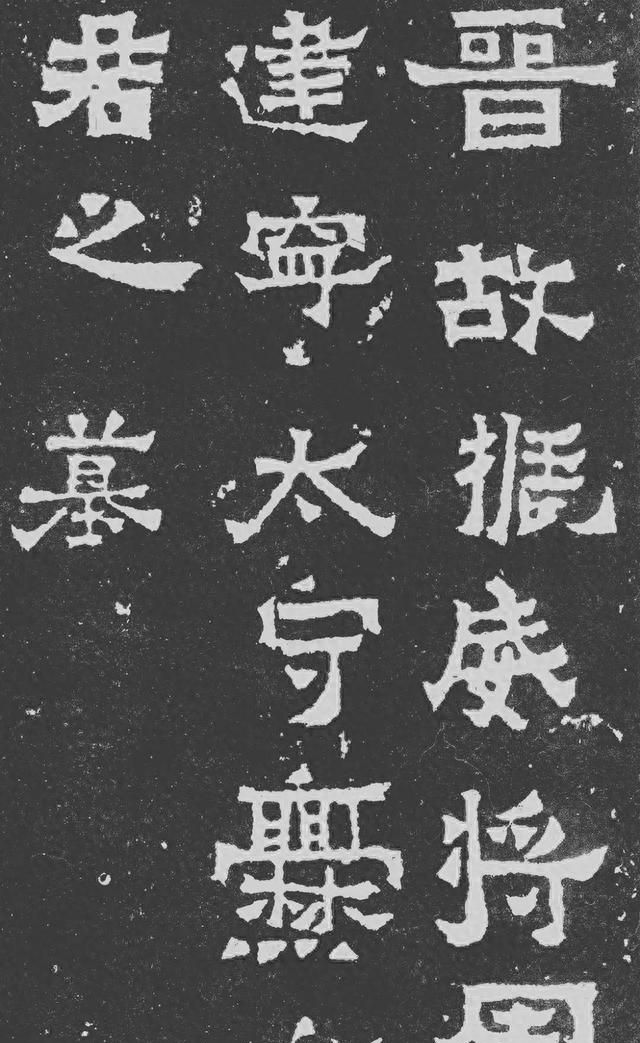 晉故振威將
建寧太守爨
君之墓